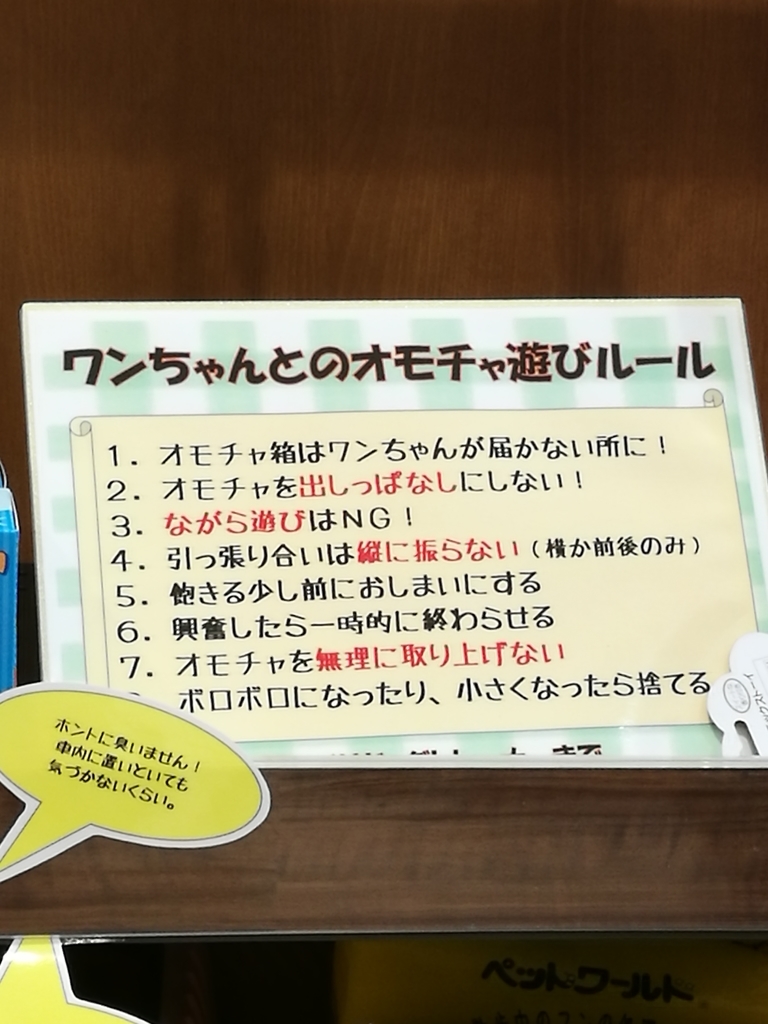 ワンちゃんとのオモチャ遊びルール
1. オモチャ箱はワンちゃんが届かない所に！
2. オモチャを出しっぱなしにしない！
3. ながら遊びはNG！
4. 引っ張り合いは縦に振らない（横か前後のみ）
5. 飽きる少し前におしまいにする
6. 興奮したら一時的に終わらせる
7. オモチャを無理に取り上げない
ボロボロになったり、小さくなったら捨てる
まで
ホントに臭いません！
車内に置いといても
気づかないくらい。
ペットワールド